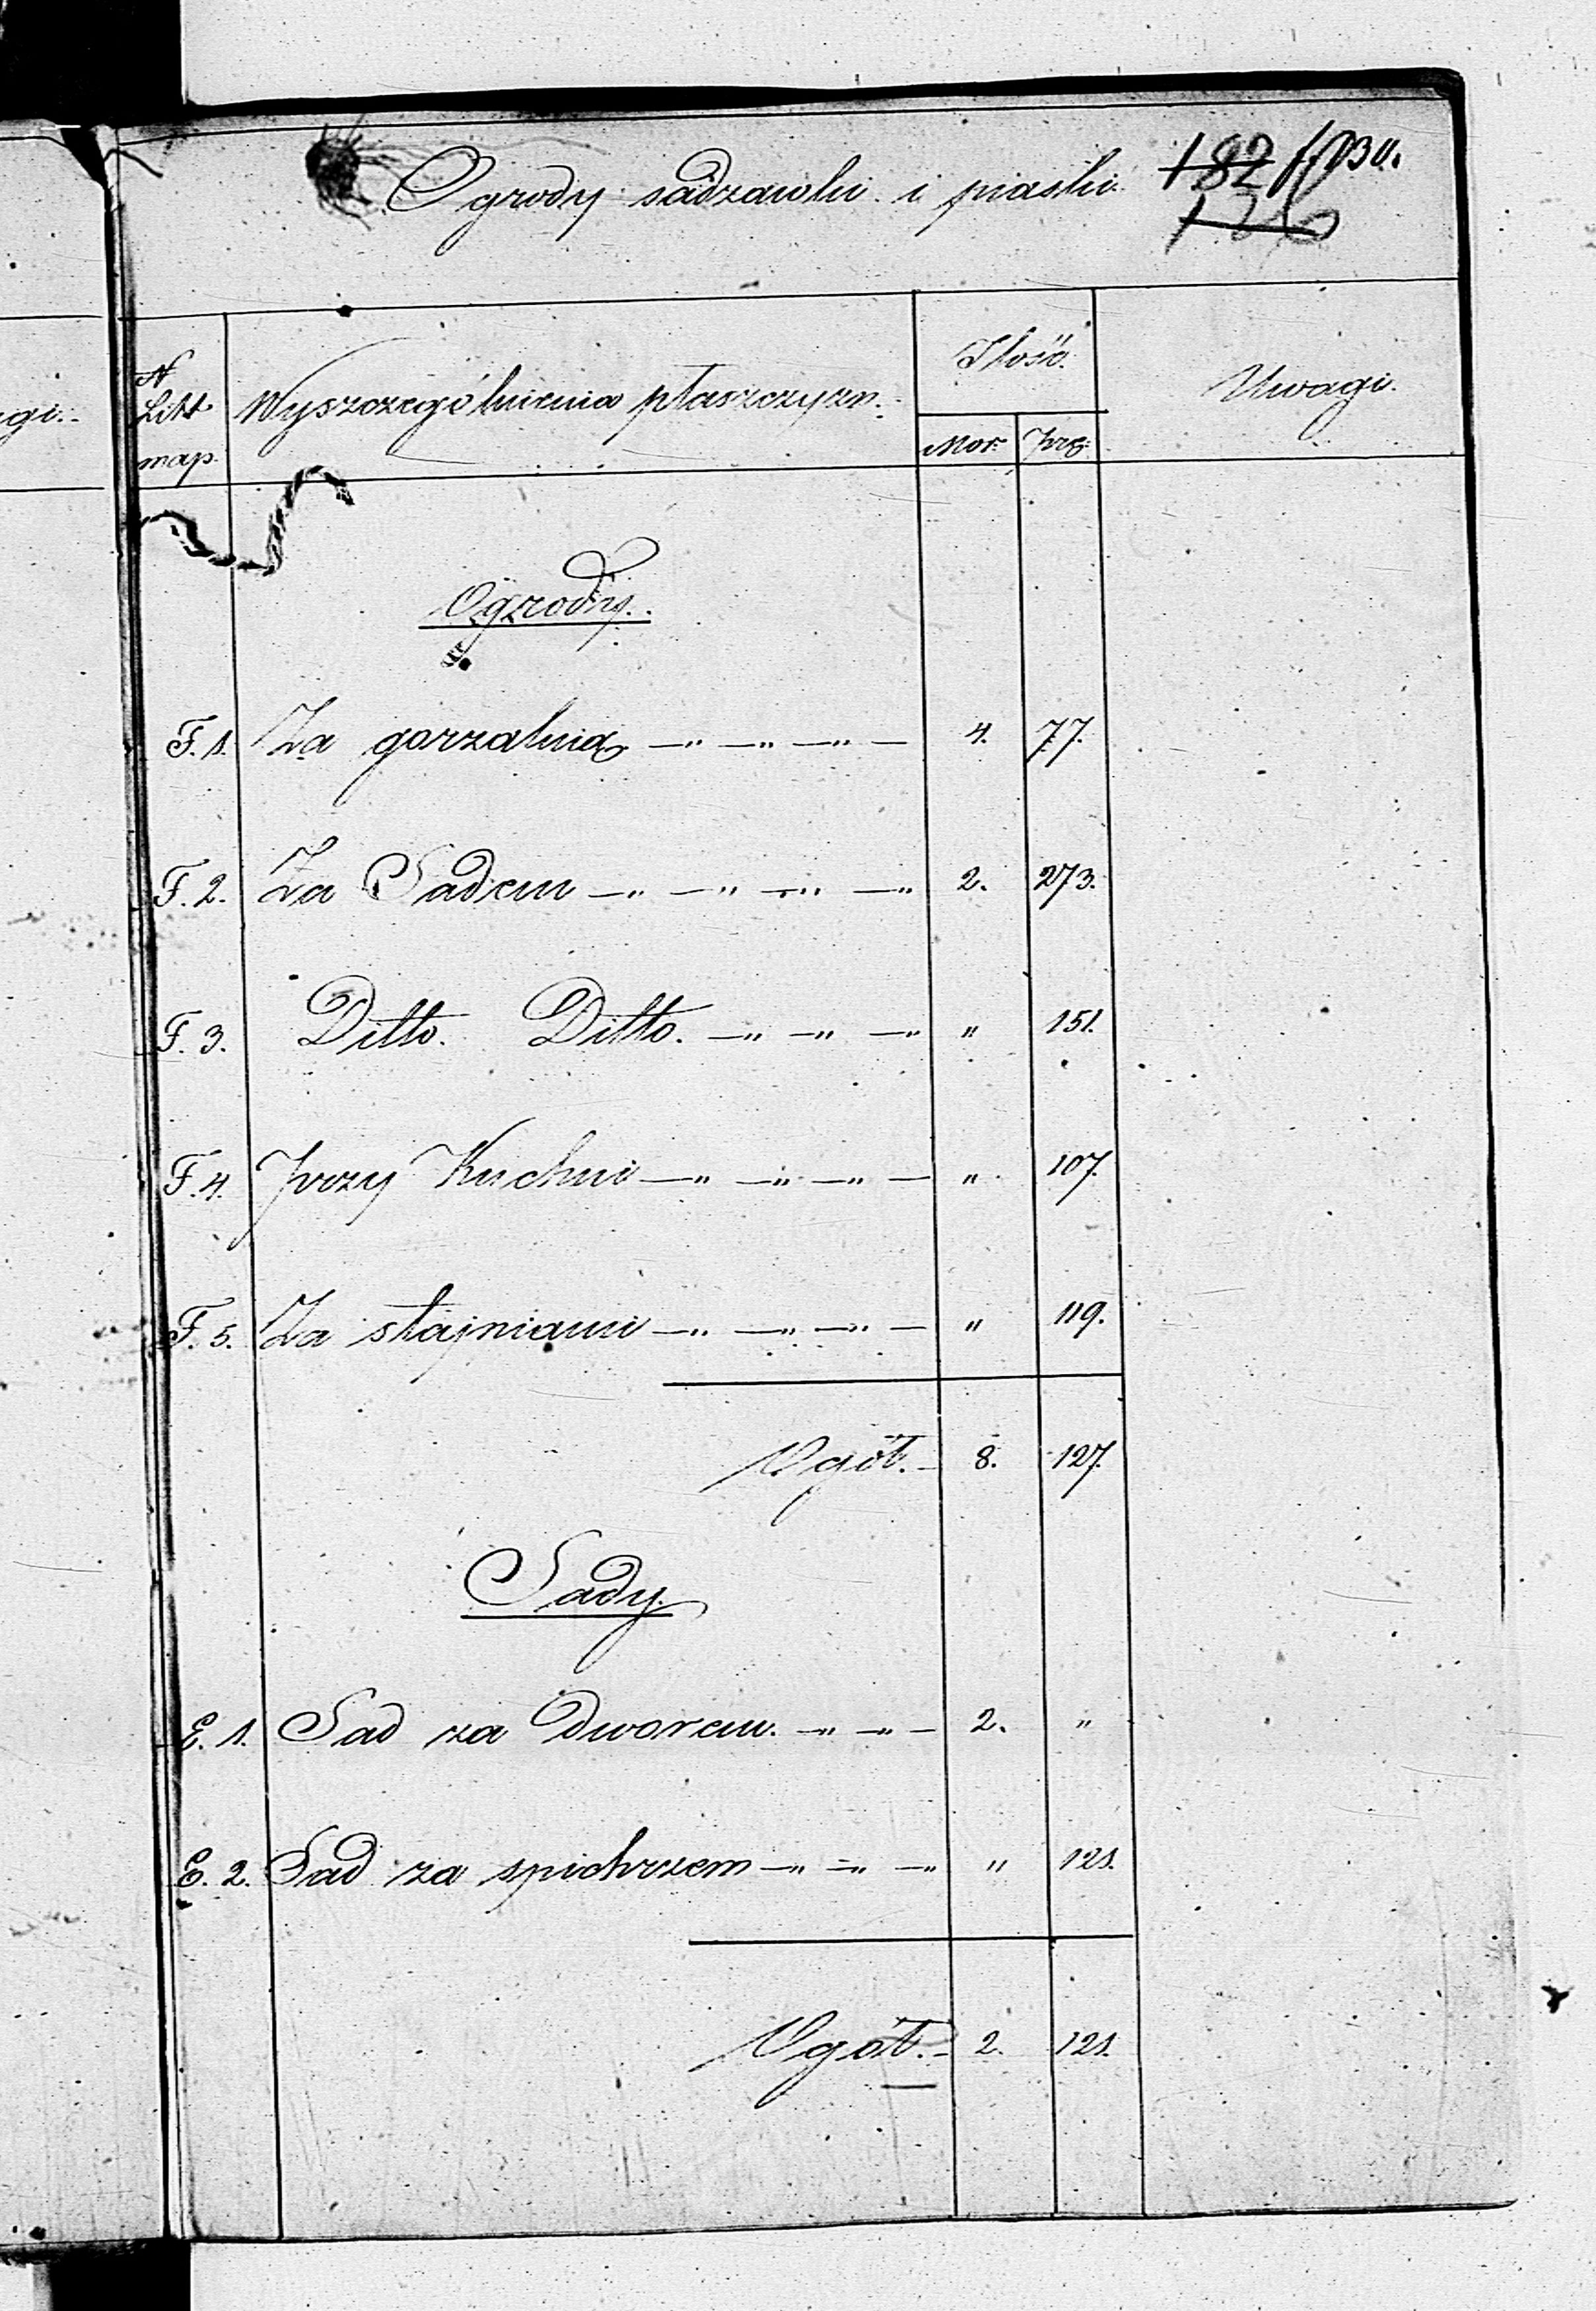 Ogrody sadzawki i piaski
182
126
N
Litt
map.
Wyszczególnienia płaszczyzn.
Ilość.
Mor. Prę.
Uwagi.
Ogrody.
F. 1. Za gorzalnią —„ —„ —„ — 4. 77.
F. 2. Za Sadem —„ —„ —„ —„ 2. 273.
F. 3. Ditto. Ditto. —„ —„ —„ „ 151.
F. 4. Przy Kuchni —„ —„ —„ — „ 107.
F. 5. Za stajniami —„ —„ —„ — „ 119.
Ogół. 8. 127.
Sady.
E. 1. Sad za Dworem. —„ —„ — 2. „
E. 2. Sad za spichrzem —„ —„ —„ „ 121.
Ogół. 2. 121.